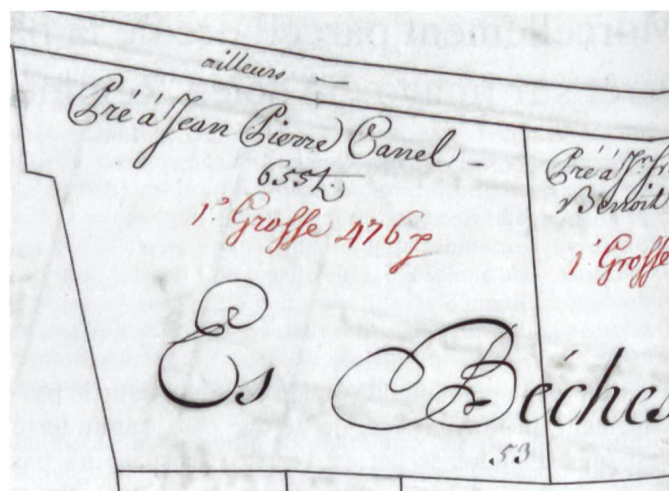 ailleurs
Pré à Jean Pierre Canel
655
1.e Grosse 476
Pré à
Benoit
1.e Grosse
Es Béches
53